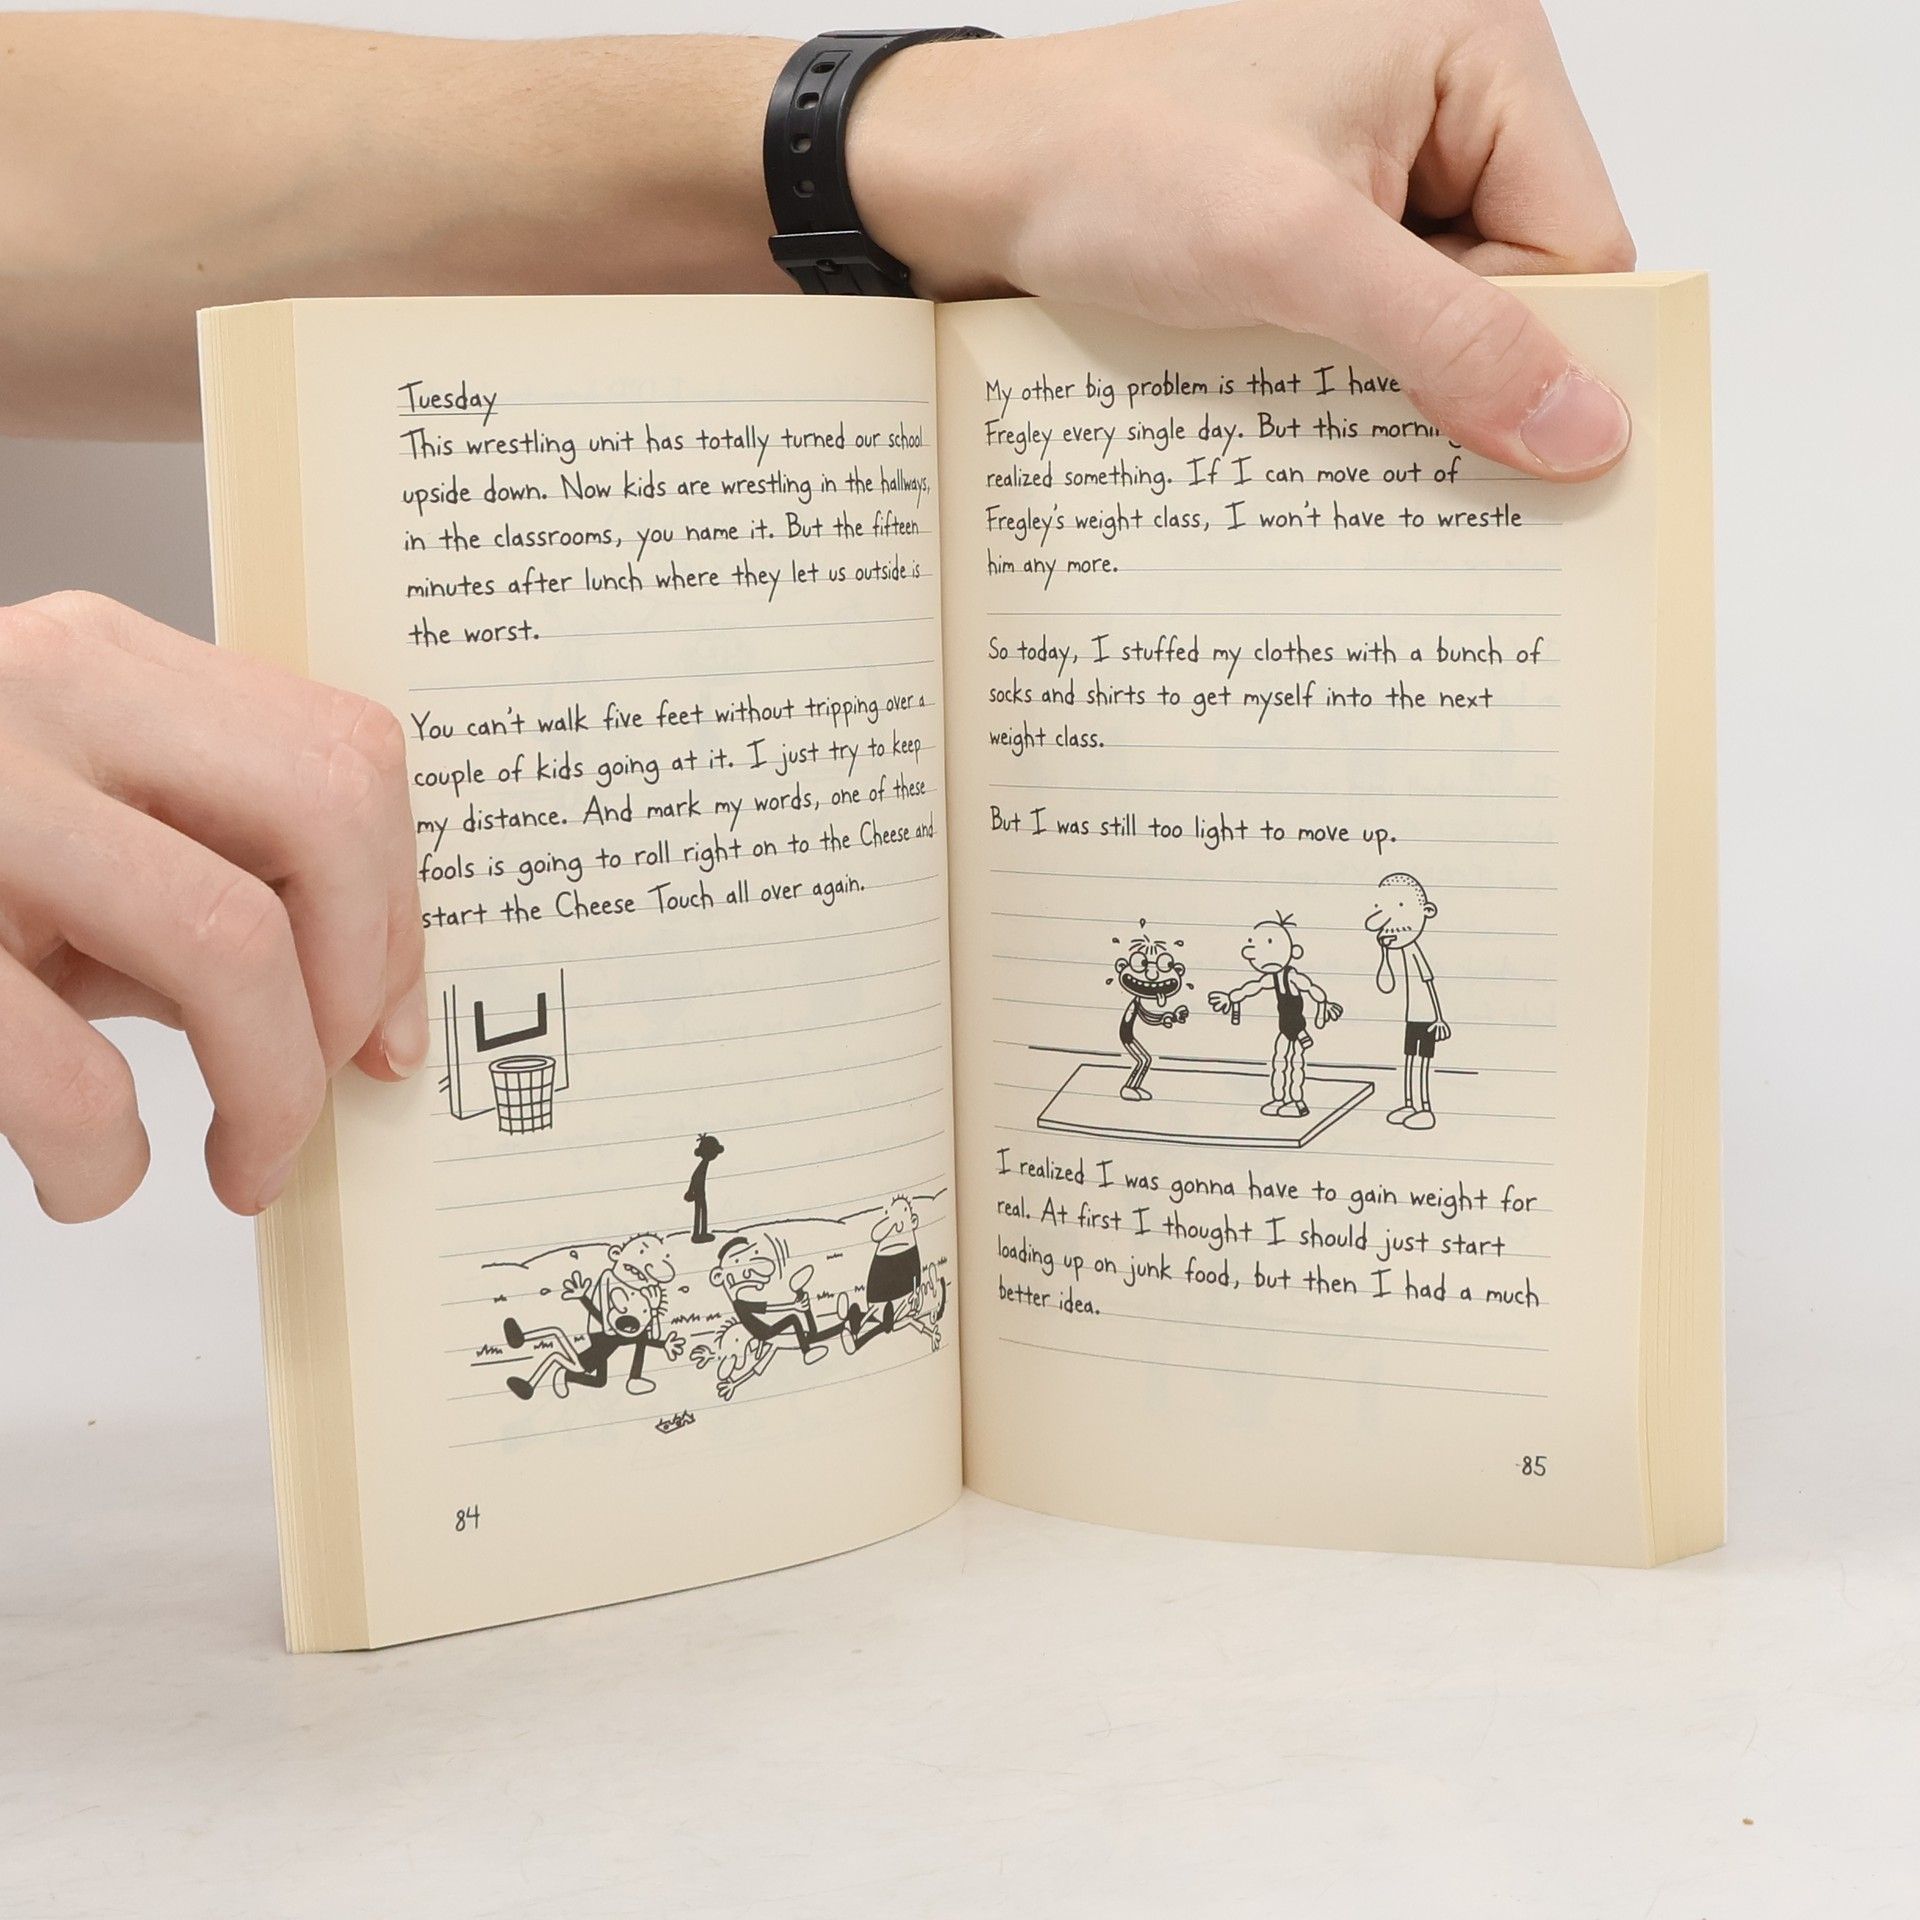 Tuesday
This wrestling unit has totally turned our school
upside down. Now kids are wrestling in the hallways,
in the classrooms, you name it. But the fifteen
minutes after lunch where they let us outside is
the worst.
You can't walk five feet without tripping over a
couple of kids going at it. I just try to keep
my distance. And mark my words, one of these
fools is going to roll right on to the Cheese and
start the Cheese Touch all over again.
84
My other big problem is that I have
Fregley every single day. But this
realized something. If I can move out of
Fregley's weight class, I won't have to wrestle
him any more.
So today, I stuffed my clothes with a bunch of
socks and shirts to get myself into the next
weight class.
But I was still too light to move up.
I realized I was gonna have to gain weight for
real. At first I thought I should just start
loading up on junk food, but then I had a much
better idea.
85